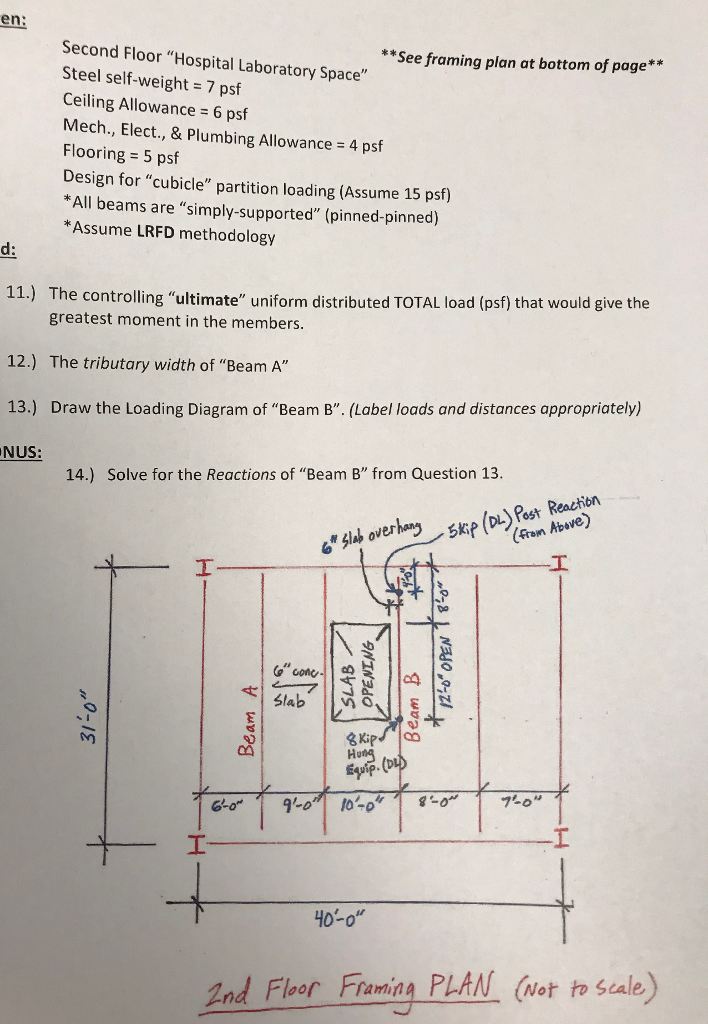 en:
Second Floor “Hospital Laboratory Space”
**See framing plan at bottom of page**
Steel self-weight = 7 psf
Ceiling Allowance = 6 psf
Mech., Elect., & Plumbing Allowance = 4 psf
Flooring = 5 psf
Design for “cubicle” partition loading (Assume 15 psf)
*All beams are “simply-supported” (pinned-pinned)
*Assume LRFD methodology
d:
11.) The controlling “ultimate” uniform distributed TOTAL load (psf) that would give the
greatest moment in the members.
12.) The tributary width of “Beam A”
13.) Draw the Loading Diagram of “Beam B”. (Label loads and distances appropriately)
ONUS:
14.) Solve for the Reactions of “Beam B” from Question 13.
6" Slab overhang
5kip (DL) Post Reaction
(from Above)
4'-0"
8'-0"
12'-0" OPEN
31'-0"
Beam A
6" conc.
Slab
SLAB
OPENING
Beam B
8 Kip
Hung
Equip. (DL)
6'-0" 9'-0" 10'-0" 8'-0" 7'-0"
40'-0"
2nd Floor Framing PLAN (Not to Scale)